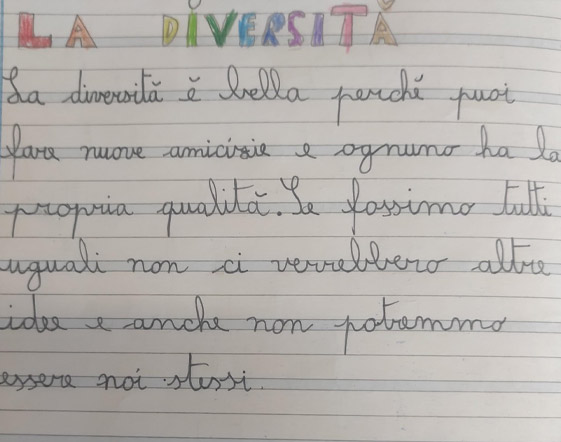 LA DIVERSITÀ
La diversità è bella perché puoi
fare nuove amicizie e ognuno ha la
propria qualità. Se fossimo tutti
uguali non ci verrebbero altre
idee e anche non potremmo
essere noi stessi.